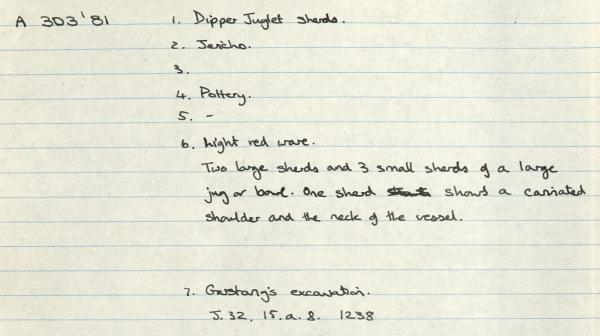 A 303'81 1. Dipper Juglet sherds.
2. Jericho.
3.
4. Pottery.
5. -
6. Light red ware.
Two large sherds and 3 small sherds of a large
jug or bowl. One sherd shows a carinated
shoulder and the neck of the vessel.
7. Garstang's excavation.
J. 32. 15. a. 8. 1238